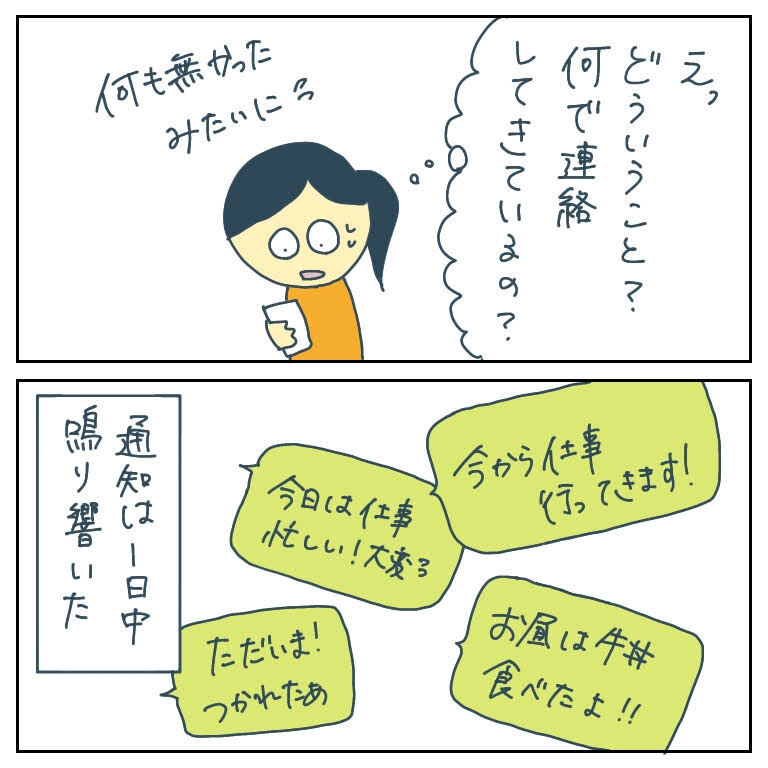 えっ
どういうこと?
何で連絡
してきているの?
何も無かった
みたいに…
今から仕事
行ってきます!
今日は仕事
忙しい!大変
お昼は牛丼
食べたよ!!
ただいま!
つかれたぁ
通知は一日中
鳴り響いた